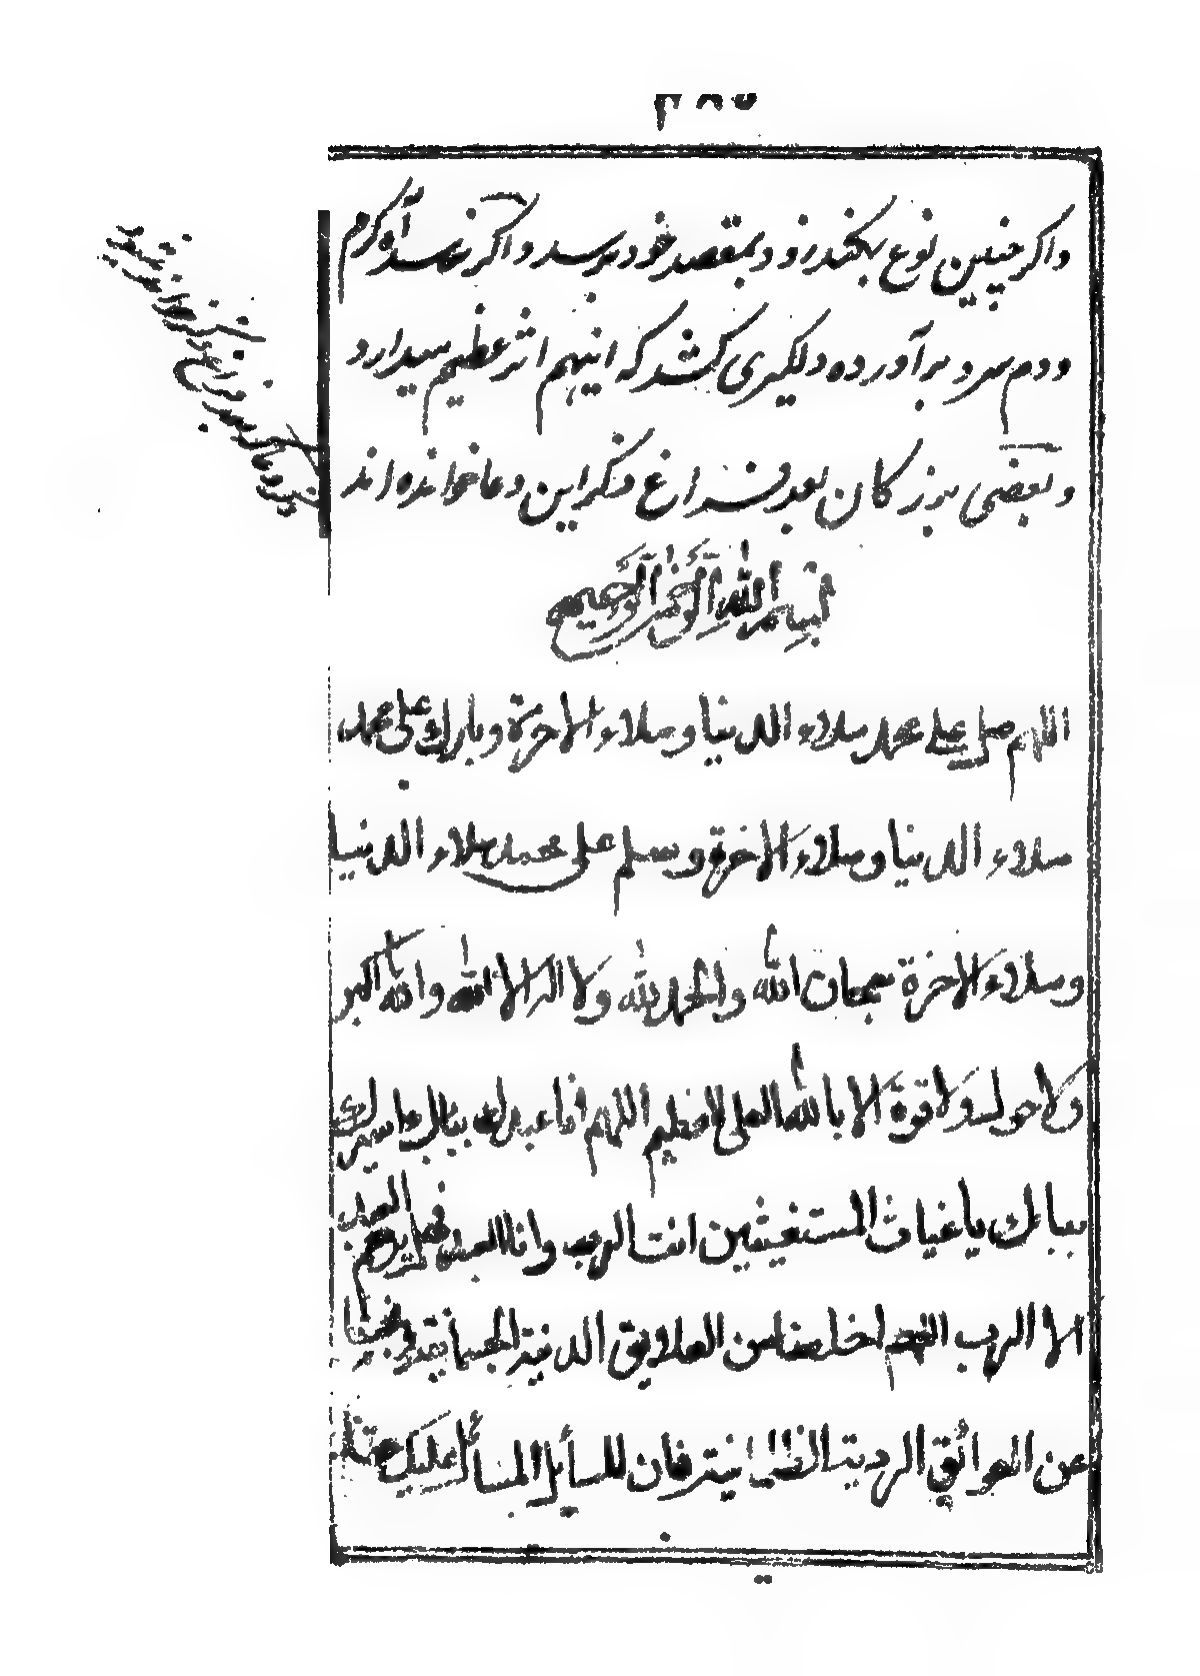 واکر چنین نوع بکند زود بمقصد خود برسد واکر آه کرم
ودم سرد برآورده دلکیری کشد که اینهم اثر عظیم میدارد
وبعضی بزرکان بعد فراغ ذکر این دعا خوانده اند
بسم الله الرحمن الرحيم
اللهم صل على محمد ملاء الدنيا وملاء الاخرة وبارك على محمد
ملاء الدنيا وملاء الاخرة وسلم على محمد ملاء الدنيا
وملاء الاخرة سبحان الله والحمد لله ولا اله الا الله والله اكبر
ولا حول ولا قوة الا بالله العلي العظيم اللهم انا عبدك ببابك
ببابك يا غياث المستغيثين انت الرب وانا العبد فهل يرحم العبد
الا الرب اللهم اخلصنا من العلايق الدنية الجسمانية
عن العوائق الردية الظلمانية فان للسايل المسأل عليك